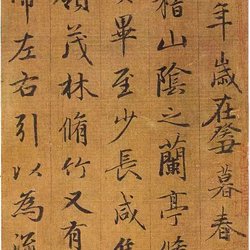 年歲在癸丑暮春
稽山陰之蘭亭脩
畢至少長咸集
茂林脩竹又有
帶左右引以為流